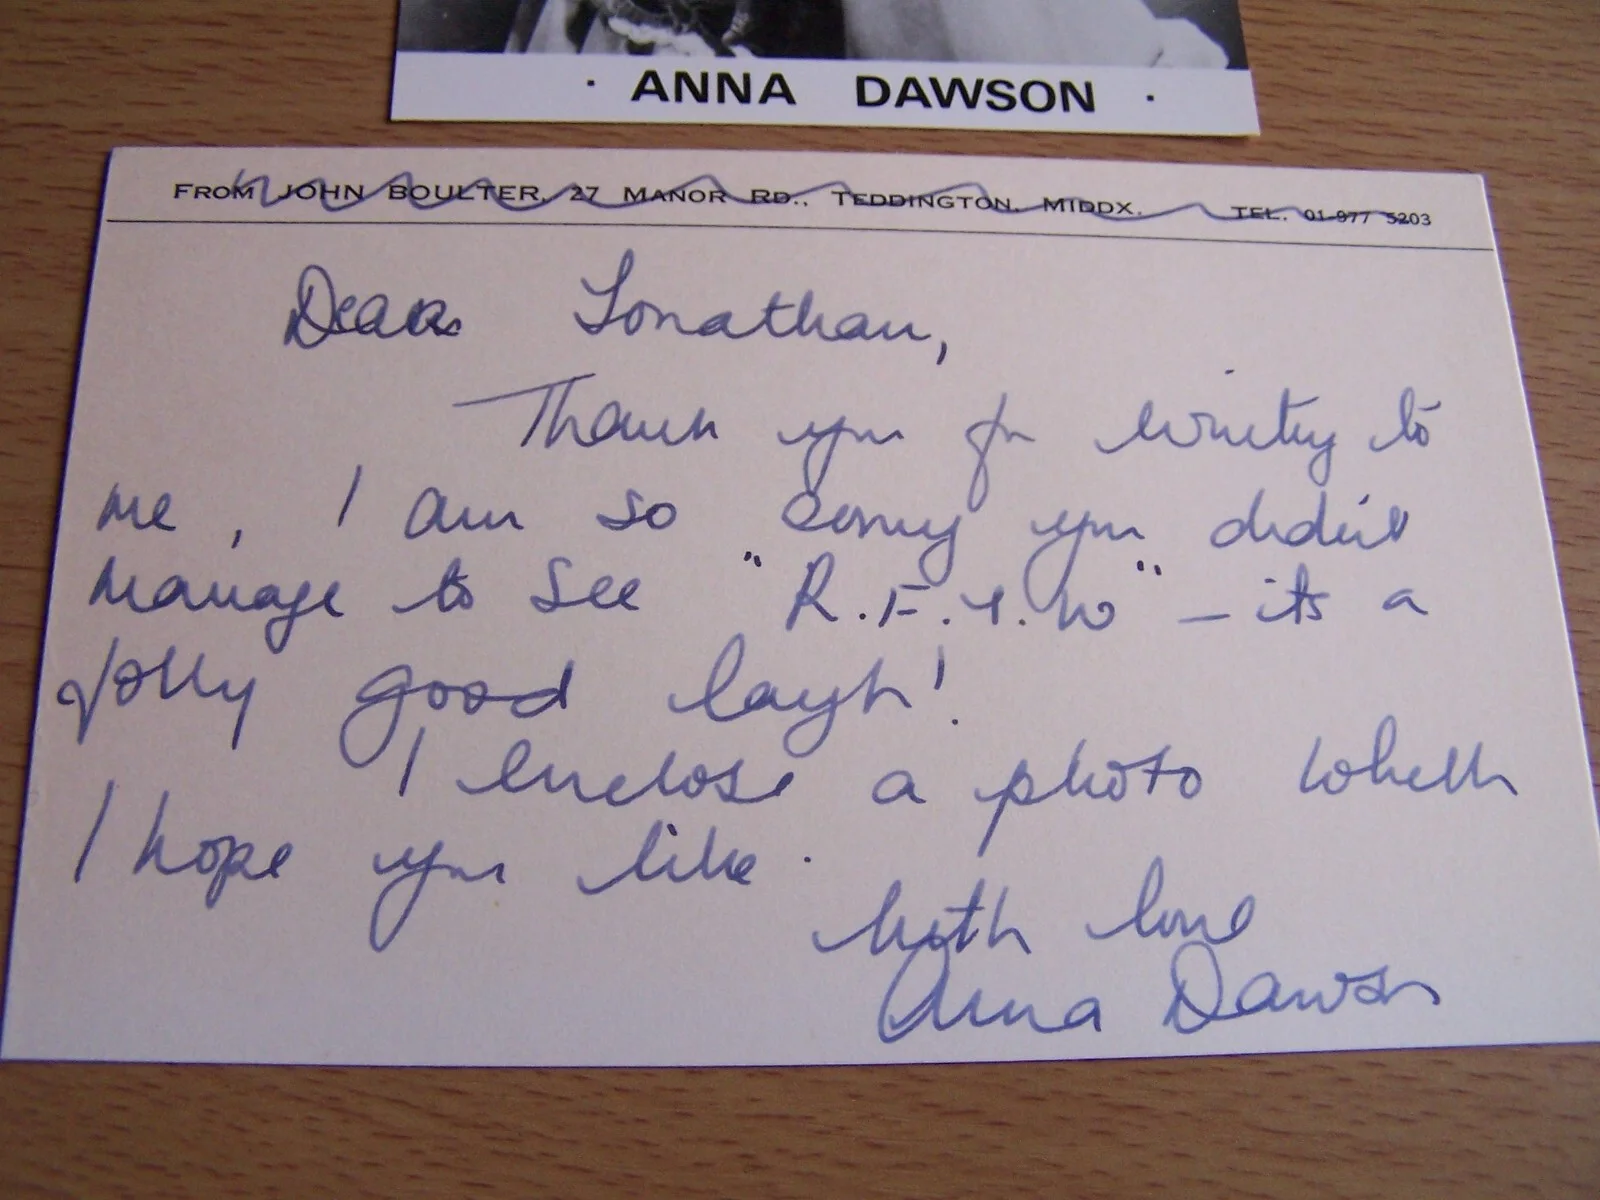 · ANNA DAWSON ·
FROM JOHN BOULTER, 27 MANOR RD., TEDDINGTON, MIDDX. TEL. 01-977 5203
Dear Jonathan,
Thank you for writing to
me, I am so sorry you didn't
manage to see "R.F.Y.W" – its a
jolly good laugh!
I enclose a photo which
I hope you like.
With love
Anna Dawson